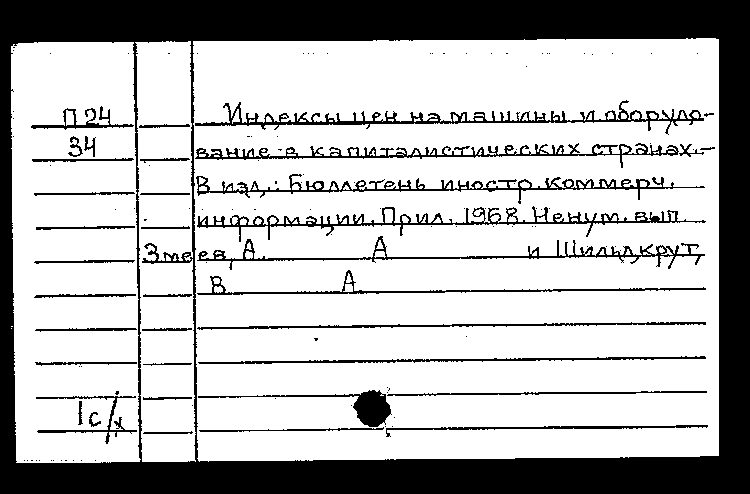 П 24 Индексы цен на машины и оборудо-
34 вание в капиталистических странах.-
В изд.: Бюллетень иностр. коммерч.
информации. Прил. 1968. Ненум. вып.
Змеев, А. А и Шильдкрут,
В А
1с/х